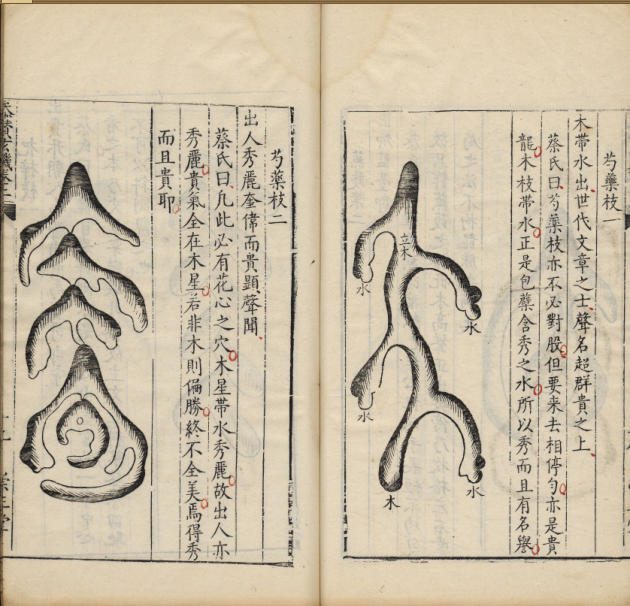 芍藥枝一
木帶水出世代文章之士聲名超群貴之上
蔡氏曰芍藥枝亦不必對股但要来去相停勻亦是貴
龍木枝帶水正是包蘂含秀之水所以秀而且有名譽
立木
水
水
水
水
木
芍藥枝二
出人秀麗奎偉而貴顯聲聞
蔡氏曰凡此必有花心之穴木星帶水秀麗故出人亦
秀麗貴氣全在木星若非木則偏勝終不全美焉得秀
而且貴耶